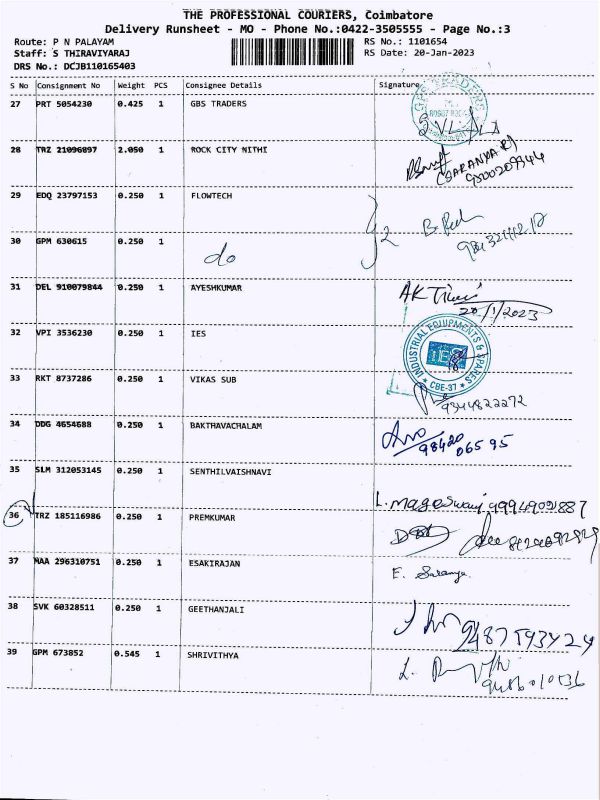 THE PROFESSIONAL COURIERS, Coimbatore
Delivery Runsheet - MO - Phone No.:0422-3505555 - Page No.:3
Route: P N PALAYAM
RS No.: 1101654
Staff: S THIRAVIYARAJ
RS Date: 20-Jan-2023
DRS No.: DCJB110165403
S No Consignment No Weight PCS Consignee Details Signature
27 PRT 5054230 0.425 1 GBS TRADERS
28 TRZ 21096897 2.050 1 ROCK CITY NITHI
(SARANYA R)
29 EDQ 23797153 0.250 1 FLOWTECH
2
30 GPM 630615 0.250 1
do
31 DEL 910079844 0.250 1 AYESHKUMAR
AK
20/1/2023
32 VPI 3536230 0.250 1 IES
INDUSTRIAL EQUIPMENTS & SPARES
IES
CBE-37
33 RKT 8737286 0.250 1 VIKAS SUB
9344822272
34 DDG 4654688 0.250 1 BAKTHAVACHALAM
98420 06595
35 SLM 312053145 0.250 1 SENTHILVAISHNAVI
L. mageswary
36 TRZ 185116986 0.250 1 PREMKUMAR
37 MAA 296310751 0.250 1 ESAKIRAJAN
E. Saranya
38 SVK 60328511 0.250 1 GEETHANJALI
9487593424
39 GPM 673852 0.545 1 SHRIVITHYA